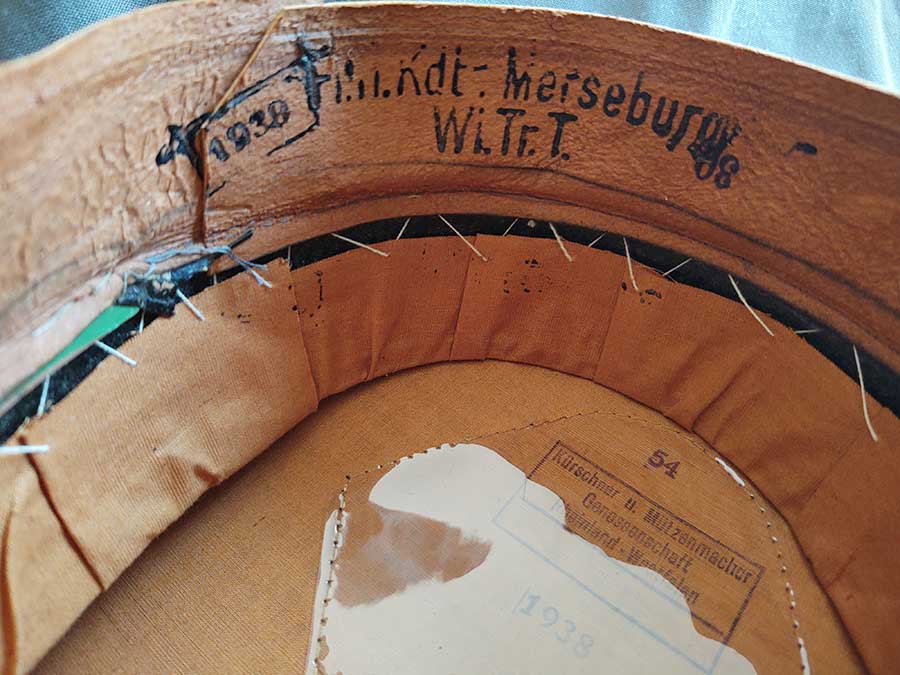 1938
Fl.H.Kdt - Merseburg
Wi.Tr.T.
54
Kürschner u. Mützenmacher
Genossenschaft
Rheinland-Westfalen
1938